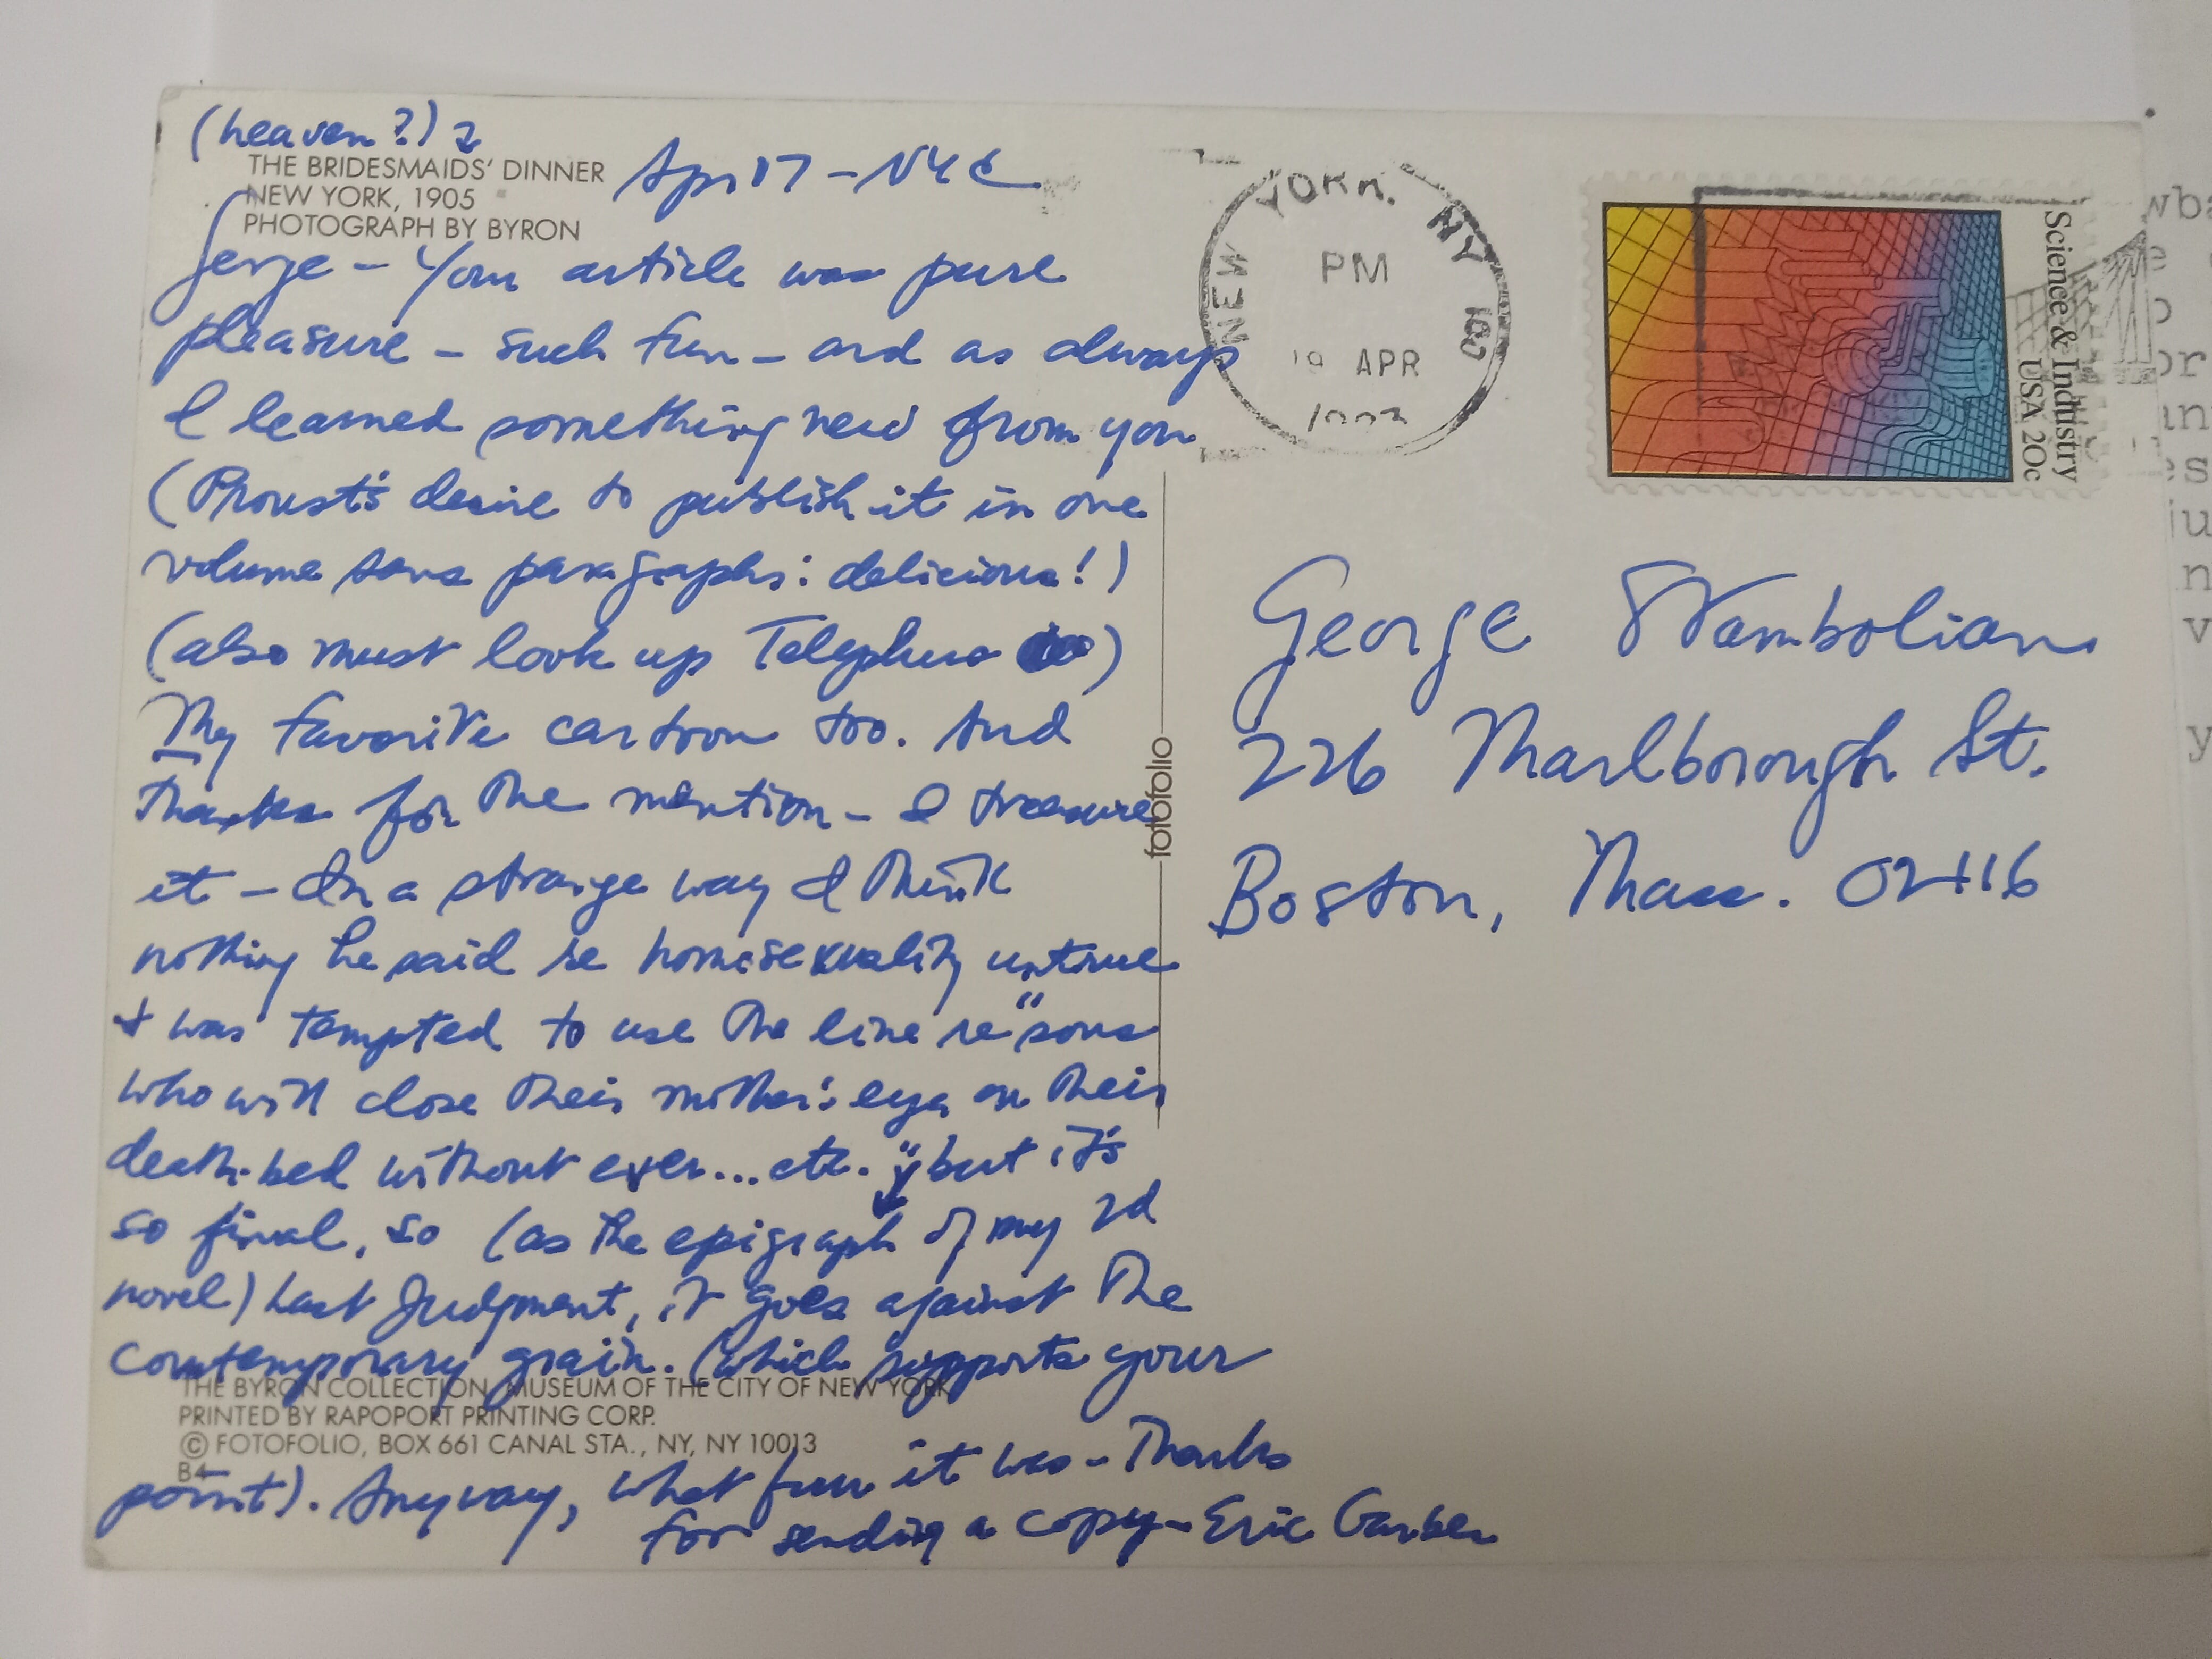 (heaven?)
THE BRIDESMAIDS' DINNER
NEW YORK, 1905
PHOTOGRAPH BY BYRON
Apr 17 - NYC
George - Your article was pure
pleasure - such fun - and as always
I learned something new from you
(Proust's desire to publish it in one
volume sans paragraphs: delicious!)
(also must look up Telephus)
My favorite cartoon too. And
thanks for the mention - I treasure
it - In a strange way I think
nothing he said re homosexuality untrue
& was tempted to use the line re "sons
who will close their mother's eyes on their
death-bed without ever... etc." but it's
so final, so (as the epigraph of my 2d
novel) Last Judgment, it goes against the
contemporary grain. (which supports your
THE BYRON COLLECTION, MUSEUM OF THE CITY OF NEW YORK
PRINTED BY RAPOPORT PRINTING CORP.
© FOTOFOLIO, BOX 661 CANAL STA., NY, NY 10013
B4
point). Anyway, what fun it was - Thanks
for sending a copy - Eric Garber
fotofolio
NEW YORK, NY 100
PM
19 APR
Science & Industry
USA 20c
George Stambolian
226 Marlborough St.
Boston, Mass. 02116